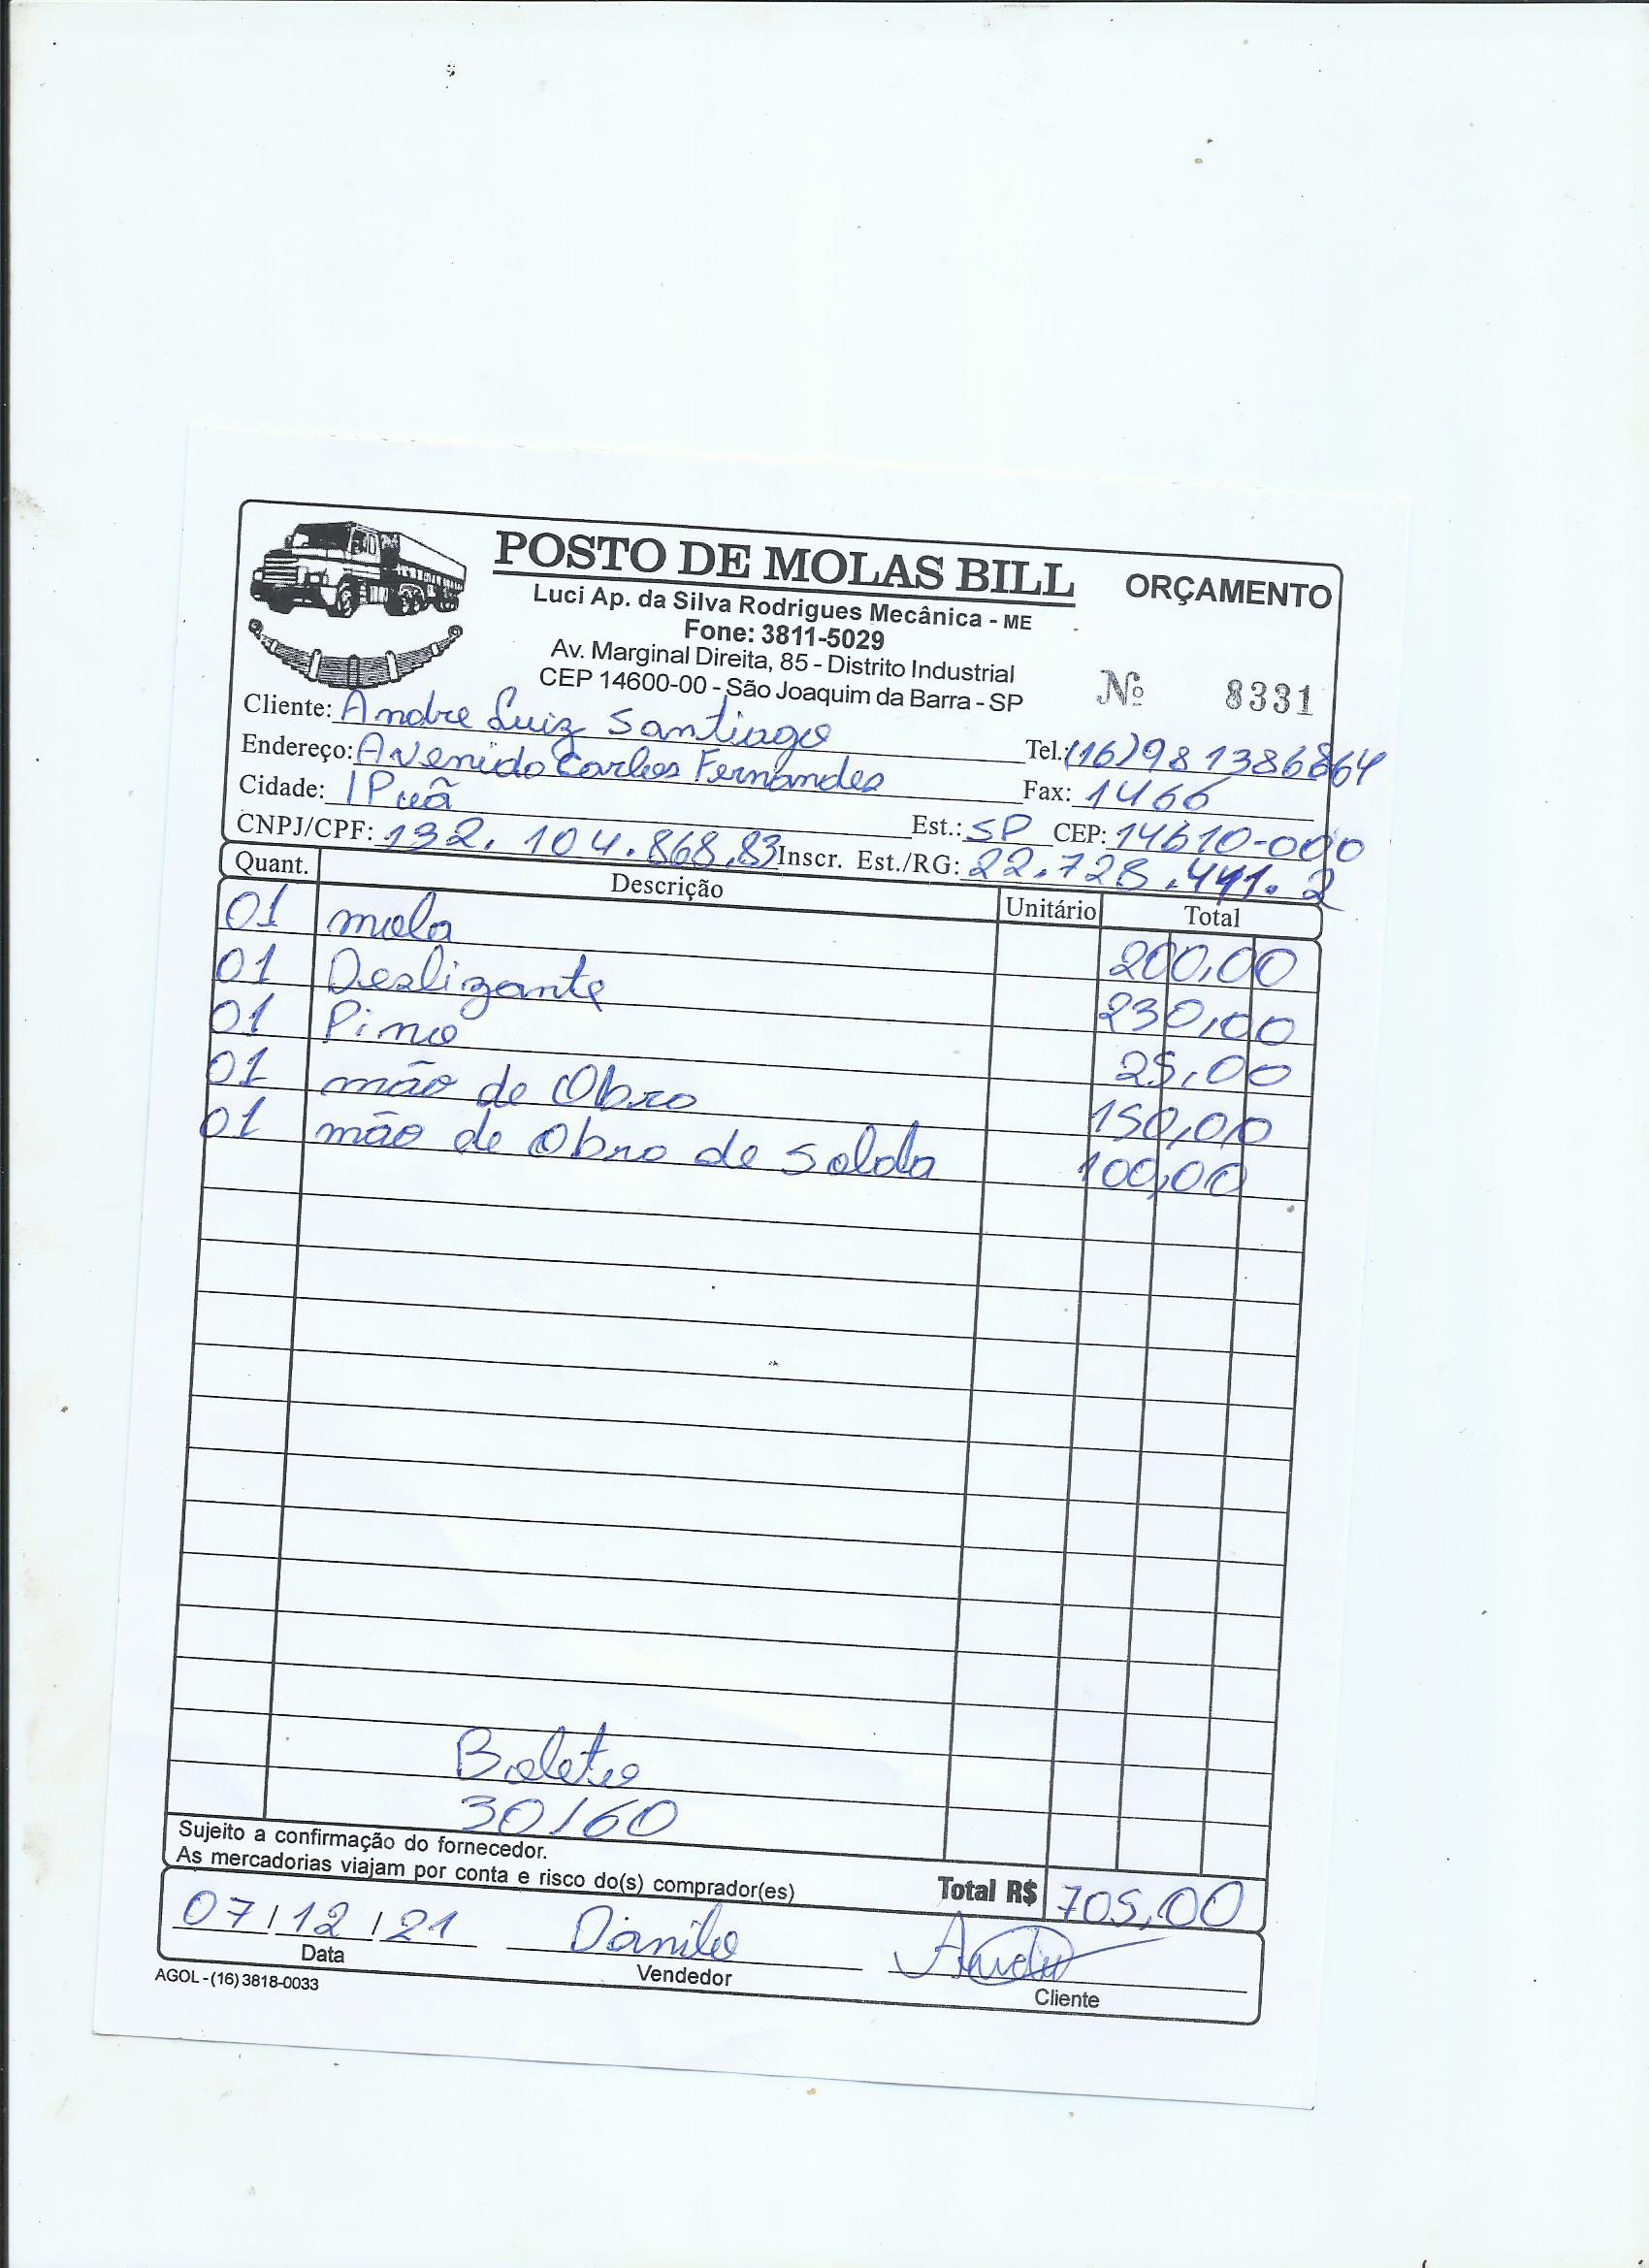 POSTO DE MOLAS BILL ORÇAMENTO
Luci Ap. da Silva Rodrigues Mecânica - ME
Fone: 3811-5029
Av. Marginal Direita, 85 - Distrito Industrial
CEP 14600-00 - São Joaquim da Barra - SP Nº 8331
Cliente: Andre Luiz Santiago Tel.: (16)981386864
Endereço: Avenida Carlos Fernandes Fax: 1466
Cidade: IPuã Est.: SP CEP: 14610-000
CNPJ/CPF: 132.104.868.83 Inscr. Est./RG: 22.728.441.2
Quant. Descrição Unitário Total
01 mola 200,00
01 Deslizante 230,00
01 Pino 25,00
01 mão de Obra 150,00
01 mão de Obra de Solda 100,00
Boleto
30/60
Sujeito a confirmação do fornecedor.
As mercadorias viajam por conta e risco do(s) comprador(es) Total R$ 705,00
07/12/21 Danilo
Data Vendedor Cliente
AGOL - (16) 3818-0033